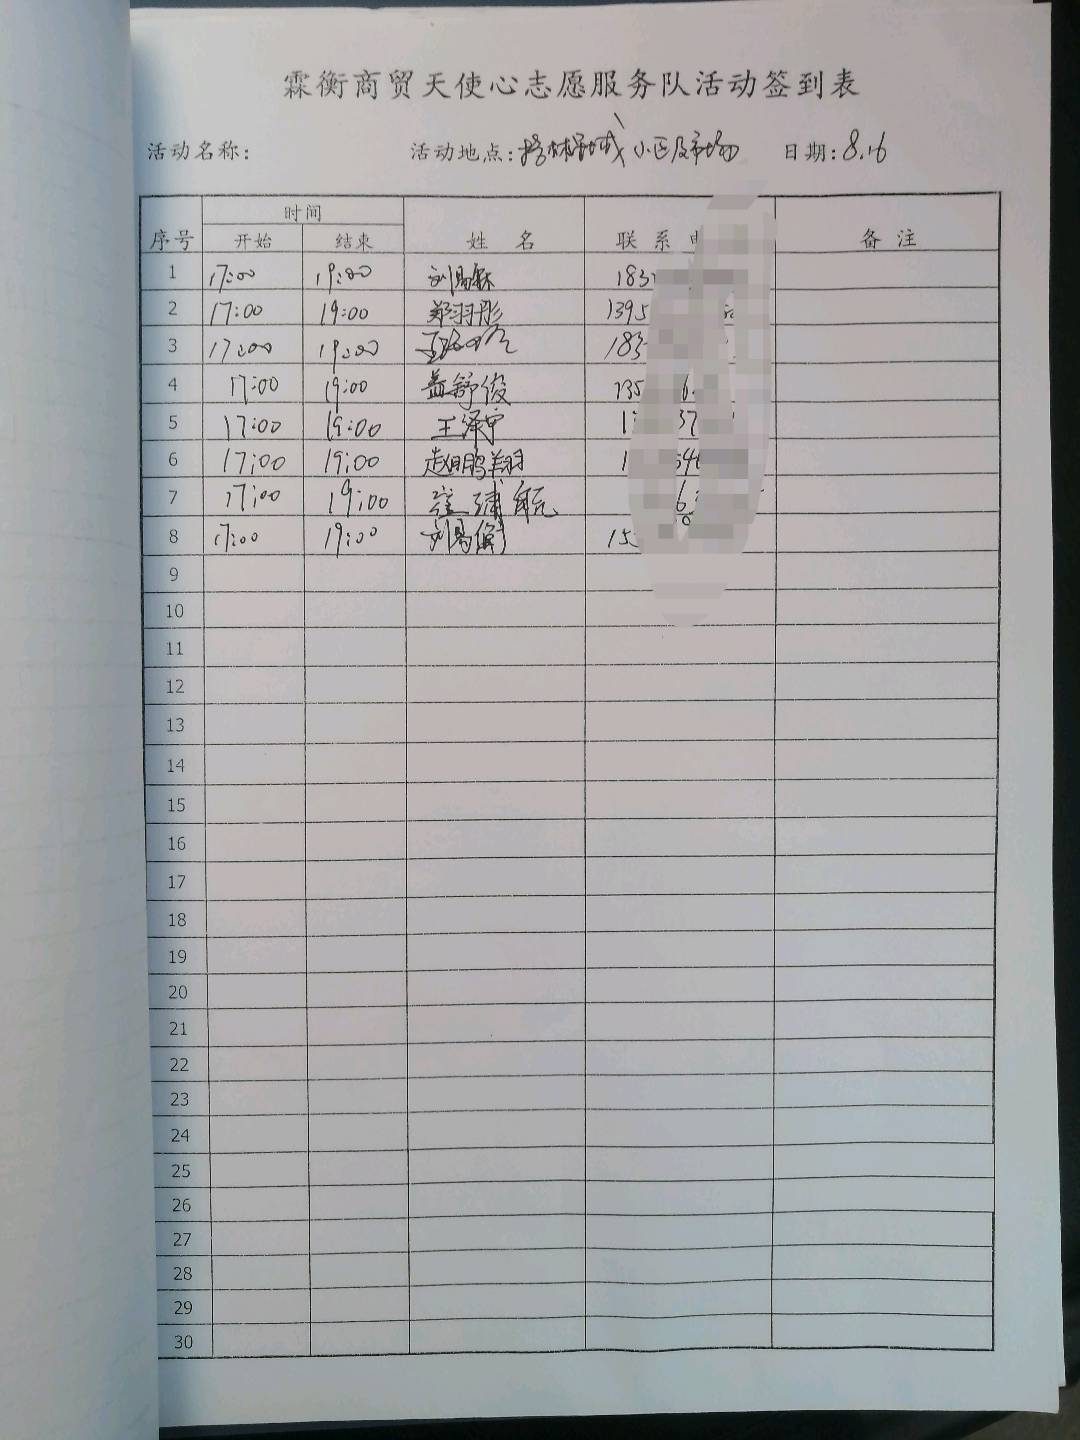 霖衡商贸天使心志愿服务队活动签到表
活动名称: 活动地点: 小区及市场 日期: 8.16
时间
序号 开始 结束 姓 名 联 系 备 注
1 17:00 19:00 刘易霖 183
2 17:00 19:00 郑羽彤 1395
3 17:00 19:00 183
4 17:00 19:00 益舒俊 135 6
5 17:00 19:00 王泽宇 1 37
6 17:00 19:00 赵鹏翔 1 54
7 17:00 19:00 6
8 17:00 19:00 刘易衡 15
9
10
11
12
13
14
15
16
17
18
19
20
21
22
23
24
25
26
27
28
29
30